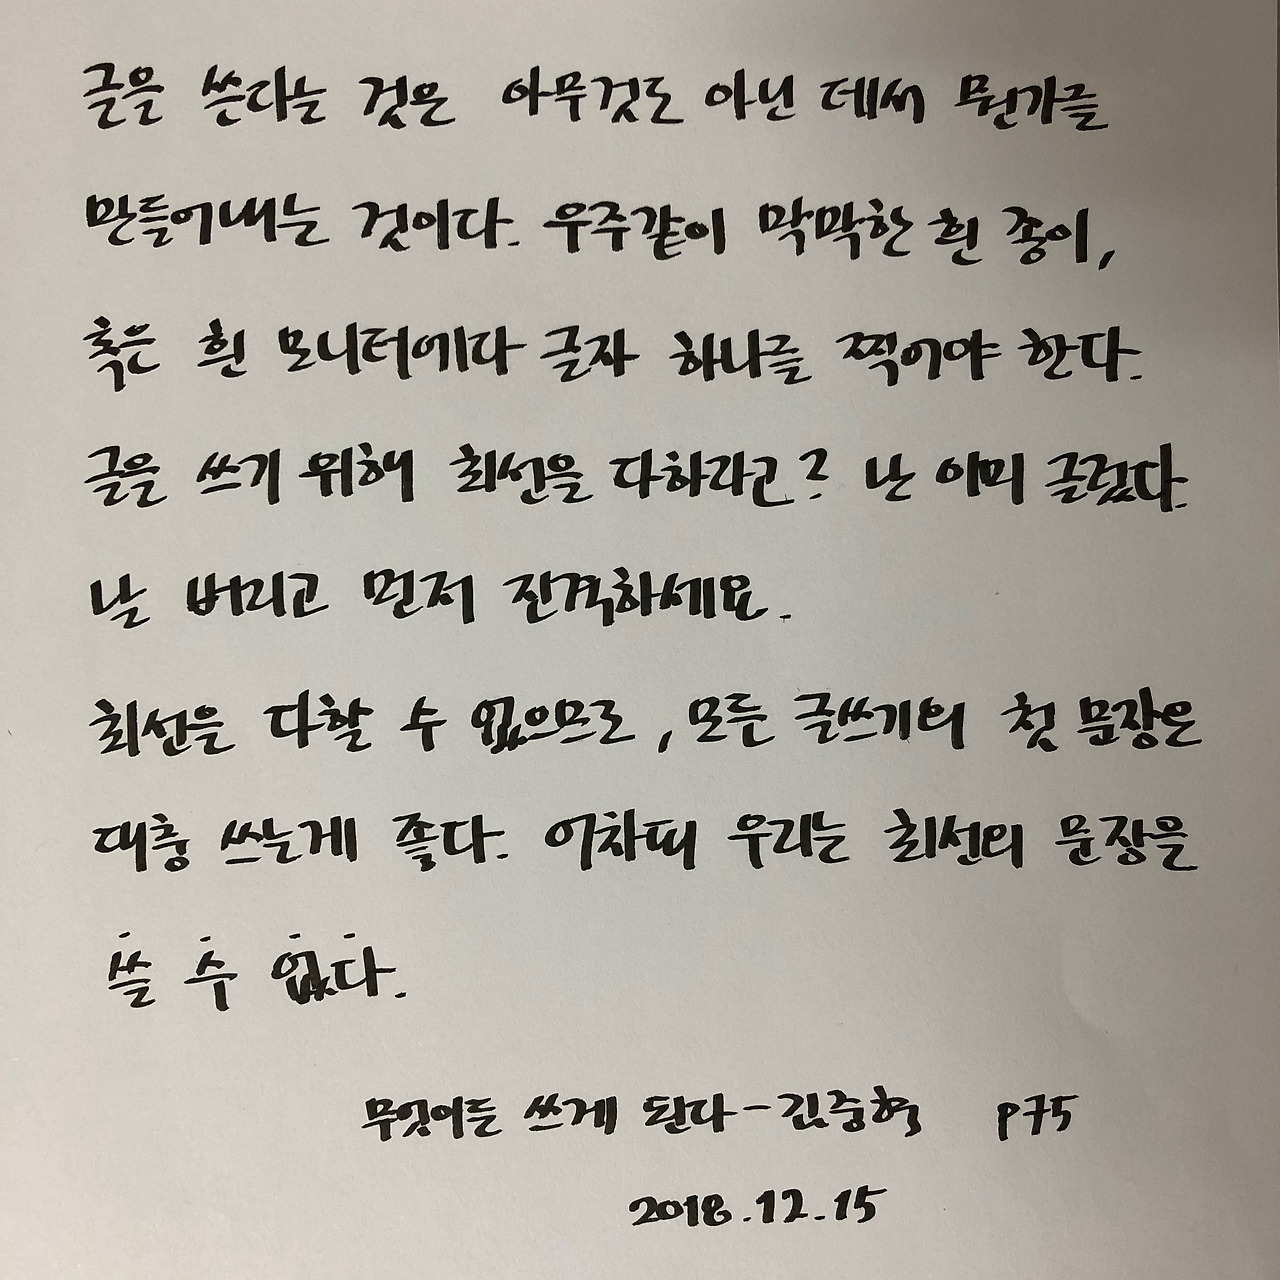 글을 쓴다는 것은 아무것도 아닌 데서 뭔가를
만들어내는 것이다. 우주같이 막막한 흰 종이,
혹은 흰 모니터에다 글자 하나를 찍어야 한다.
글을 쓰기 위해 최선을 다하라고? 난 이미 글렀다.
날 버리고 먼저 진격하세요.
최선을 다할 수 없으므로, 모든 글쓰기의 첫 문장은
대충 쓰는게 좋다. 어차피 우리는 최선의 문장을
쓸 수 없다.
무엇이든 쓰게 된다-김중혁 p75
2018.12.15